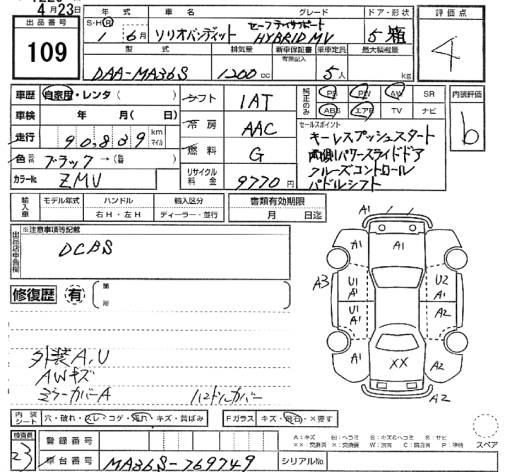 4月23日
出品番号
109
年式 車名 ドア・形状 評価点
S・H・R 1年 6月 ソリオバンディット セーフティサポート HYBRID MV 5 箱
4
型式 排気量 新車保証書 有無記入 乗車定員 最大積載量
DAA-MA36S 1200 cc 5人 kg
車歴 自家用・レンタ シフト 1AT 純正のみ PS PW AW SR 内装評価
ABS エアB TV ナビ
車検 年 月(日) 冷房 AAC
走行 90,809 km マイル 燃料 G
b
セールスポイント
キーレスプッシュスタート
両側パワースライドドア
クルーズコントロール
パドルシフト
色 ブラック →
リサイクル料金 9770円
カラーNo. ZMV
輸入車 モデル年式 ハンドル 右H・左H 輸入区分 ディーラー・並行 書類有効期限 月 日迄
※注意事項等記載
DCBS
修復歴 有 箇所
外装A,U
AWキズ
ミラーカバーA ハンドルカバー
A1
A1
A3 U1 A1 U2
A1
U1 A1 A2
XX A2
A2
内装シート 穴・破れ・スレ・コゲ・汚れ・キズ・黄ばみ Fガラス キズ・飛石・×要す
検査員
23
登録番号
車台番号 MA36S-769749 シリアルNo.
スペア